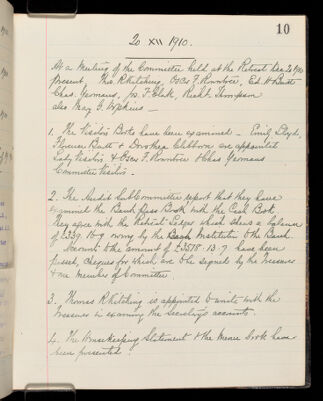 10
20 XII 1910.
At a Meeting of the Committee held at the Retreat Dec 20 1910
present, Thos. R Kitching, Oscar F. Rowntree, Ed. H. Butt
Chas. Yeomans, Jos. F. Clark, Richd. Thompson
also Mary G.
1. The Visitors Books have been examined – Emily Lloyd,
Florence Butt & Dorothea are appointed
Lady Visitors & Oscar F. Rowntree & Chas Yeomans
Committee Visitors.
2. The Audit Sub Committee report that they have
examined the Bank Pass Book with the Cash Book.
They agree with the Retreat Ledger which shews a balance
of £339. 16. 9 owing by the Bank Institution to the Bank.
Accounts to the amount of £3578. 13. 7 have been
passed, cheques for which are to be signed by the Treasurer
& one Member of Committee.
3. Thomas R Kitching is appointed to unite with the
Treasurer in examining the Secretary's accounts.
4. The Housekeeping Statement & the Menu Book have
been presented.